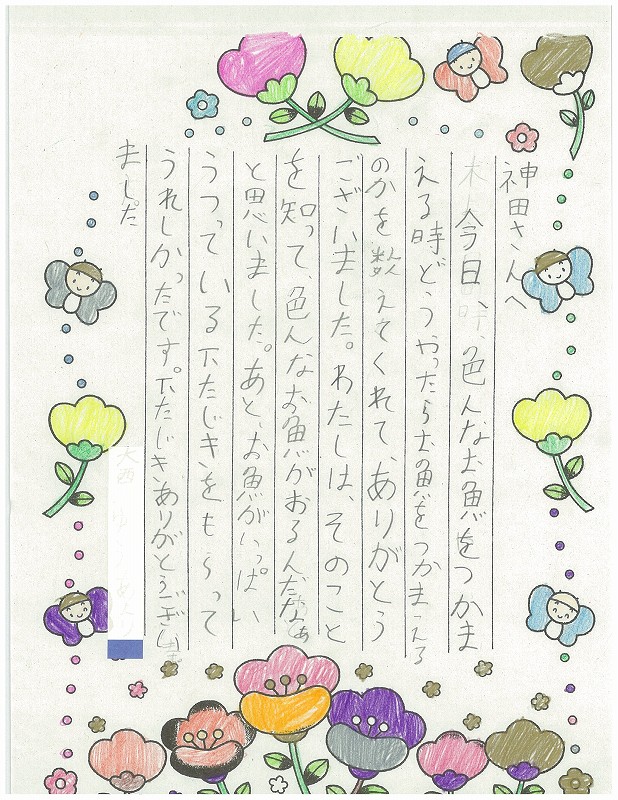 神田さんへ
今日、色んなお魚をつかま
える時どうやったらお魚をつかまえる
のかを数えてくれて、ありがとう
ございました。わたしは、そのこと
を知って、色んなお魚がおるんだなぁ
と思いました。あと、お魚がいっぱい
うつっている下たじきをもらって
うれしかったです。下たじきありがとうござい
ました